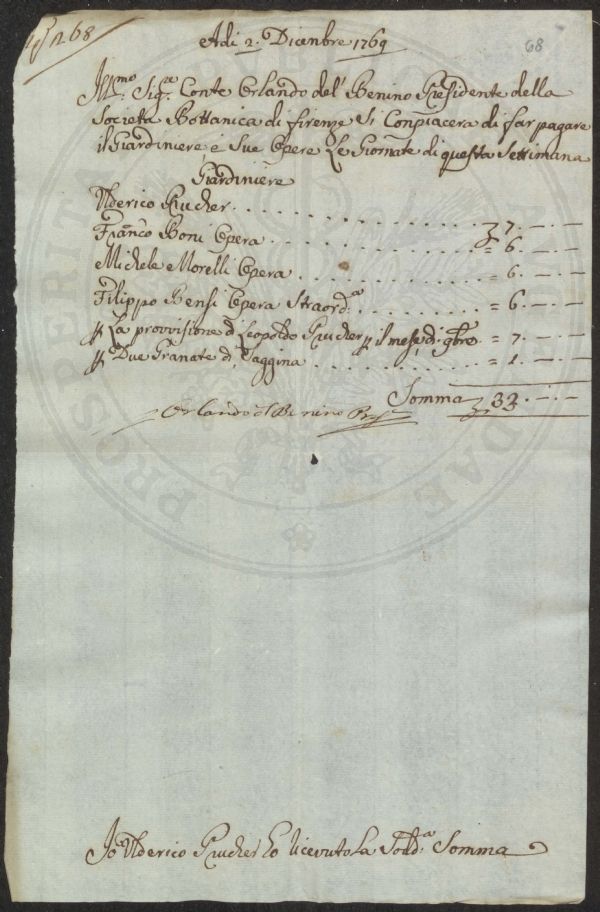 N 268
Adi 2. Dicembre 1769
68
Ill.mo Sig.re Conte Orlando del' Benino Presidente della
Società Bottanica di firenze Si Conpiacera di far pagare
il Giardiniere, è Sue Opere Le Giornate di questa Settimana
Giardiniere
Ulderico Prucher . . . 7. — . —
Fran.co Boni Opera . . . = 6 . — . —
Michele Morelli Opera . . . = 6 . — . —
Filippo Bensi Opera Straord.a . . . = 6 . — . —
p La provvisione d Leopoldo Prucher p il mese, di 9bre. = 7. — . —
p Due Granate d, Saggina . . . = 1. — . —
Somma 33. — . —
Orlando d Benino
Io Ulderico Prucher ho riceuto La Sodd.a Somma
PROSPERITA